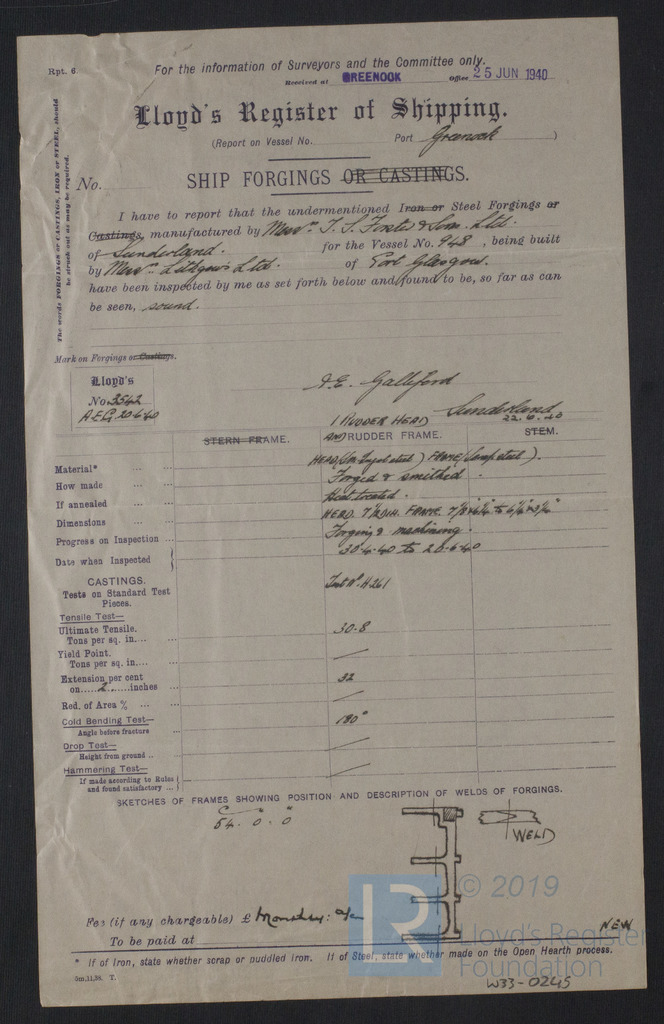 Rpt. 6.
For the information of Surveyors and the Committee only.
Received at GREENOCK Office 25 JUN 1940
Lloyd's Register of Shipping.
(Report on Vessel No. Port Greenock )
The words FORGINGS or CASTINGS, IRON or STEEL, should
be struck out as may be required.
No. SHIP FORGINGS OR CASTINGS.
I have to report that the undermentioned Iron or Steel Forgings or
Castings, manufactured by Messrs T. S. Forster & Son Ltd.
of Sunderland. for the Vessel No. 948, being built
by Messrs Lithgows Ltd. of Port Glasgow.
have been inspected by me as set forth below and found to be, so far as can
be seen, sound.
Mark on Forgings or Castings.
Lloyd's
No 3542
A.E.G. 20.6.40
A.E. Galliford
Sunderland
22.6.40
1 RUDDER HEAD
STERN FRAME. AND RUDDER FRAME. STEM.
Material* ... ... HEAD (Sm Ingot steel) FRAME (Scrap steel).
How made ... ... Forged & smithed.
If annealed ... ... Heat treated.
Dimensions ... ... HEAD. FRAME.
Progress on Inspection ... Forging & machining.
Date when Inspected 30.4.40 to 20.6.40
CASTINGS.
Tests on Standard Test
Pieces.
Test No. H261
Tensile Test—
Ultimate Tensile.
Tons per sq. in.... ... 30.8
Yield Point.
Tons per sq. in.... ... /
Extension per cent
on.....2.....inches ... 32
Red. of Area % ... /
Cold Bending Test—
Angle before fracture 180°
Drop Test—
Height from ground .. /
Hammering Test—
If made according to Rules
and found satisfactory ... /
SKETCHES OF FRAMES SHOWING POSITION AND DESCRIPTION OF WELDS OF FORGINGS.
C " "
54. 0. 0
WELD
Fee (if any chargeable) £ Monthly: a/c
To be paid at
NEW
* If of Iron, state whether scrap or puddled iron. If of Steel, state whether made on the Open Hearth process.
5m.11.38. T.
W33-0245
LR
© 2019
Lloyd's Register
Foundation